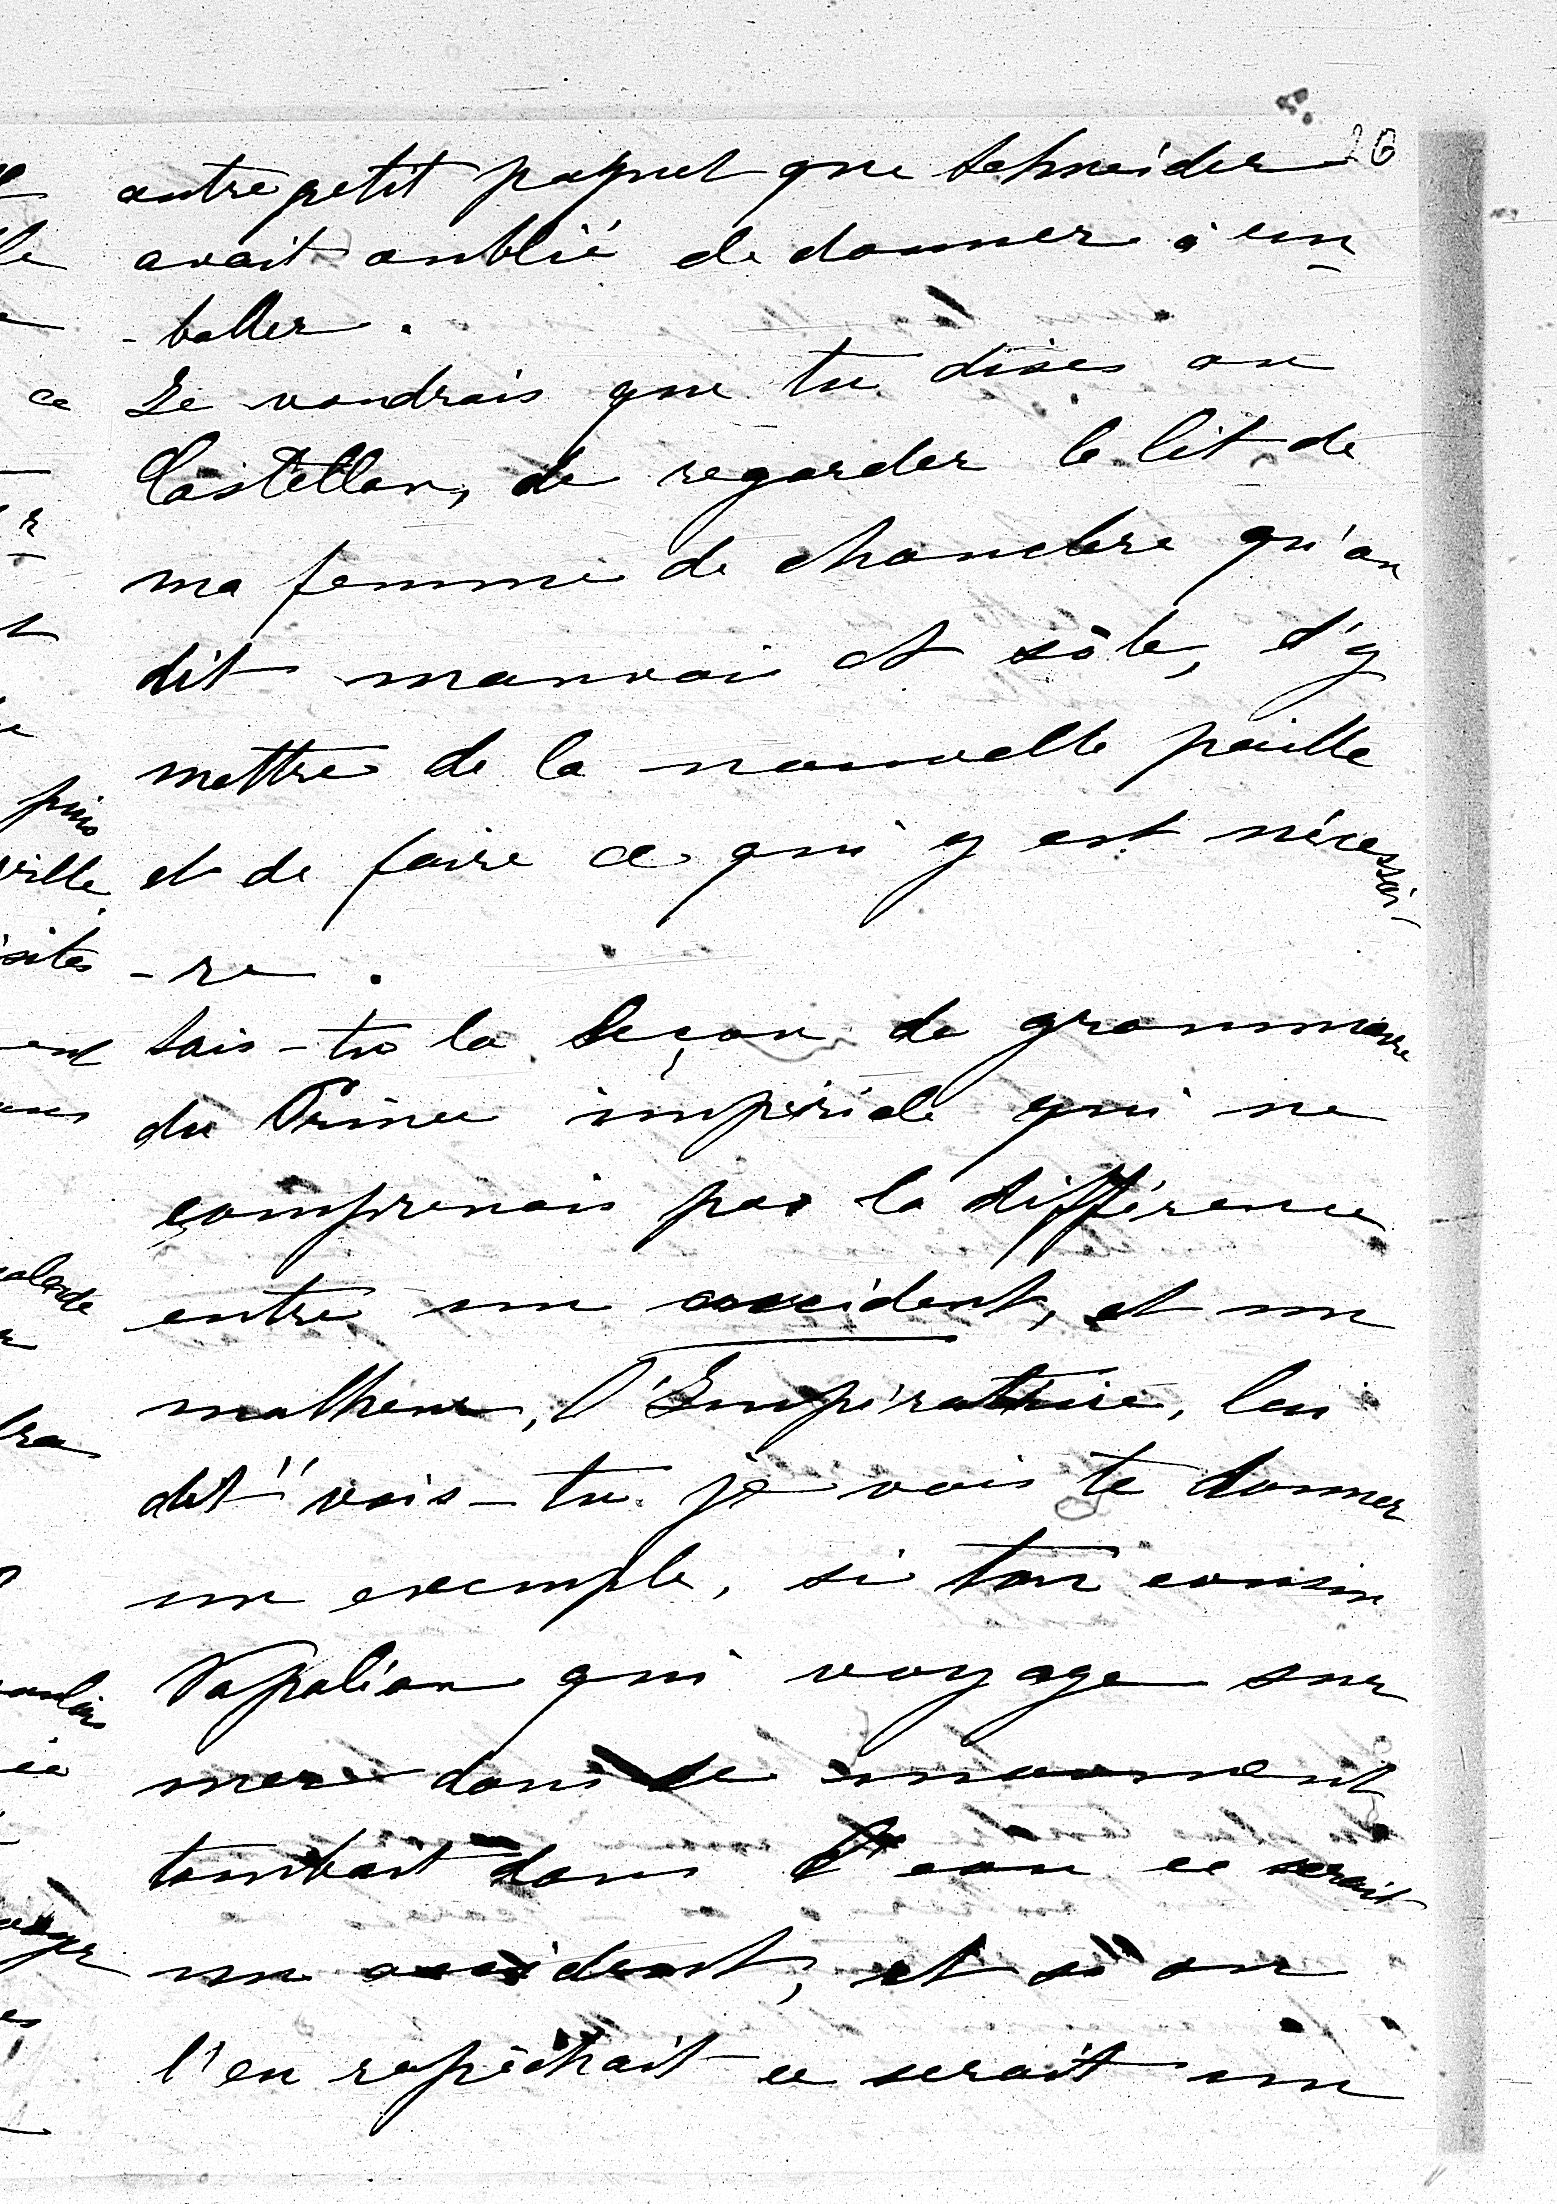 26
autre petit paquet que Schneider
avait oublié de donner à em
-baller.
Je voudrais que tu dises au
Castellan, de regarder le lit de
ma femme de chambre qu'on
dit mauvai et sâle, d'y
mettre de la nouvelle paille
et de faire ce qui y est nécessai-
-re.
Sais-tu la leçon de grammaire
du Prince impériale qui ne
comprenais pas la différence
entre un accident, et un
malheur, l'Impératrice, lui
dit " vois-tu je vais te donner
un exemple, si ton cousin
Napoléon qui voyage sur
mer dans ce moment
tombait dans l'eau ce serait
un accident, et si on
l'en repêchait ce serait un